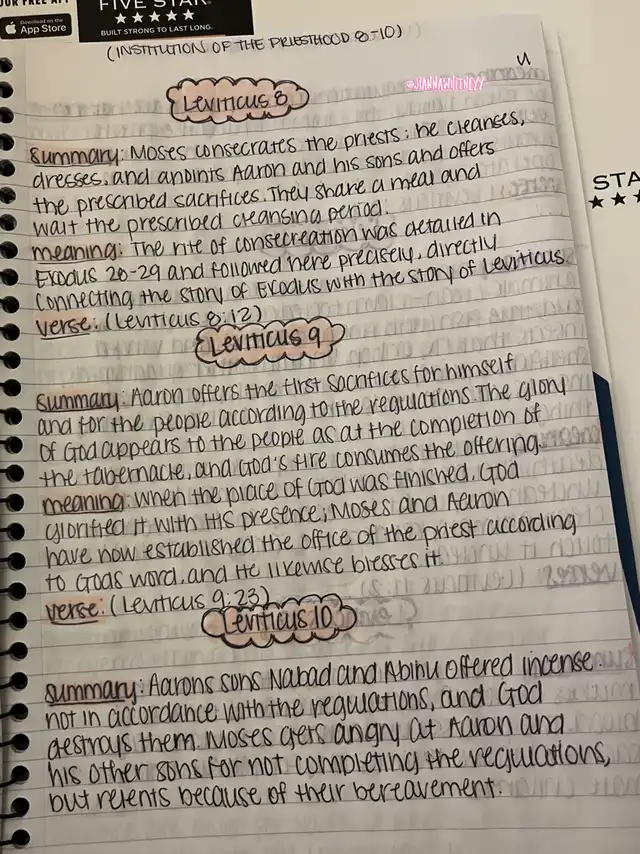 OUR FREE APP
Download on the
App Store
FIVE STAR
BUILT STRONG TO LAST LONG.
(INSTITUTION OF THE PRIESTHOOD 8-10)
Leviticus 8
@JIANNAWHITNEYY
STA
Summary: Moses consecrates the priests: he cleanses,
dresses, and anoints Aaron and his sons and offers
the prescribed sacrifices. They share a meal and
wait the prescribed cleansing period.
meaning: The rite of consecreation was detailed in
Exodus 28-29 and followed here precisely, directly
connecting the story of Exodus with the story of Leviticus.
verse: (Leviticus 8:12)
Leviticus 9
Summary: Aaron offers the first sacrifices for himself
and for the people according to the regulations. The glory
of God appears to the people as at the completion of
the tabernacle, and God's fire consumes the offering.
meaning: when the place of God was finished, God
glorified it with His presence; Moses and Aaron
have now established the office of the priest according
to Gods word, and He likewise blesses it.
verse: (Leviticus 9:23)
Leviticus 10
Summary: Aarons sons Nabad and Abihu offered incense
not in accordance with the regulations, and God
destroys them. Moses gets angry at Aaron and
his other sons for not completing the regulations,
but relents because of their bereavement.